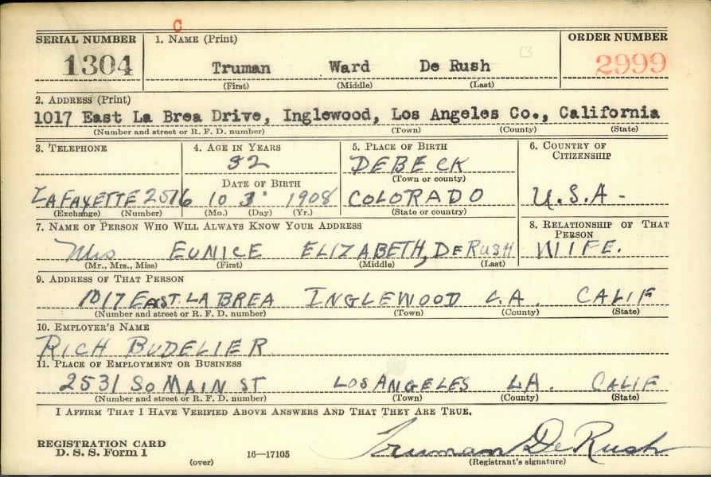 C
SERIAL NUMBER 1. NAME (Print) ORDER NUMBER
1304 Truman Ward De Rush 2999
(First) (Middle) (Last)
2. ADDRESS (Print)
1017 East La Brea Drive, Inglewood, Los Angeles Co., California
(Number and street or R. F. D. number) (Town) (County) (State)
3. TELEPHONE 4. AGE IN YEARS 5. PLACE OF BIRTH 6. COUNTRY OF CITIZENSHIP
32 DEBECK
DATE OF BIRTH (Town or county)
LAFAYETTE 2516 10 3 1908 COLORADO U.S.A-
(Exchange) (Number) (Mo.) (Day) (Yr.) (State or country)
7. NAME OF PERSON WHO WILL ALWAYS KNOW YOUR ADDRESS 8. RELATIONSHIP OF THAT PERSON
Mrs EUNICE ELIZABETH, DERUSH WIFE.
(Mr., Mrs., Miss) (First) (Middle) (Last)
9. ADDRESS OF THAT PERSON
1017 EAST. LA BREA INGLEWOOD L.A. CALIF
(Number and street or R. F. D. number) (Town) (County) (State)
10. EMPLOYER'S NAME
RICH BUDELIER
11. PLACE OF EMPLOYMENT OR BUSINESS
2531 SO MAIN ST LOS ANGELES LA. CALIF
(Number and street or R. F. D. number) (Town) (County) (State)
I AFFIRM THAT I HAVE VERIFIED ABOVE ANSWERS AND THAT THEY ARE TRUE.
REGISTRATION CARD
D. S. S. Form 1 (over) 16—17105 Truman DeRush
(Registrant's signature)